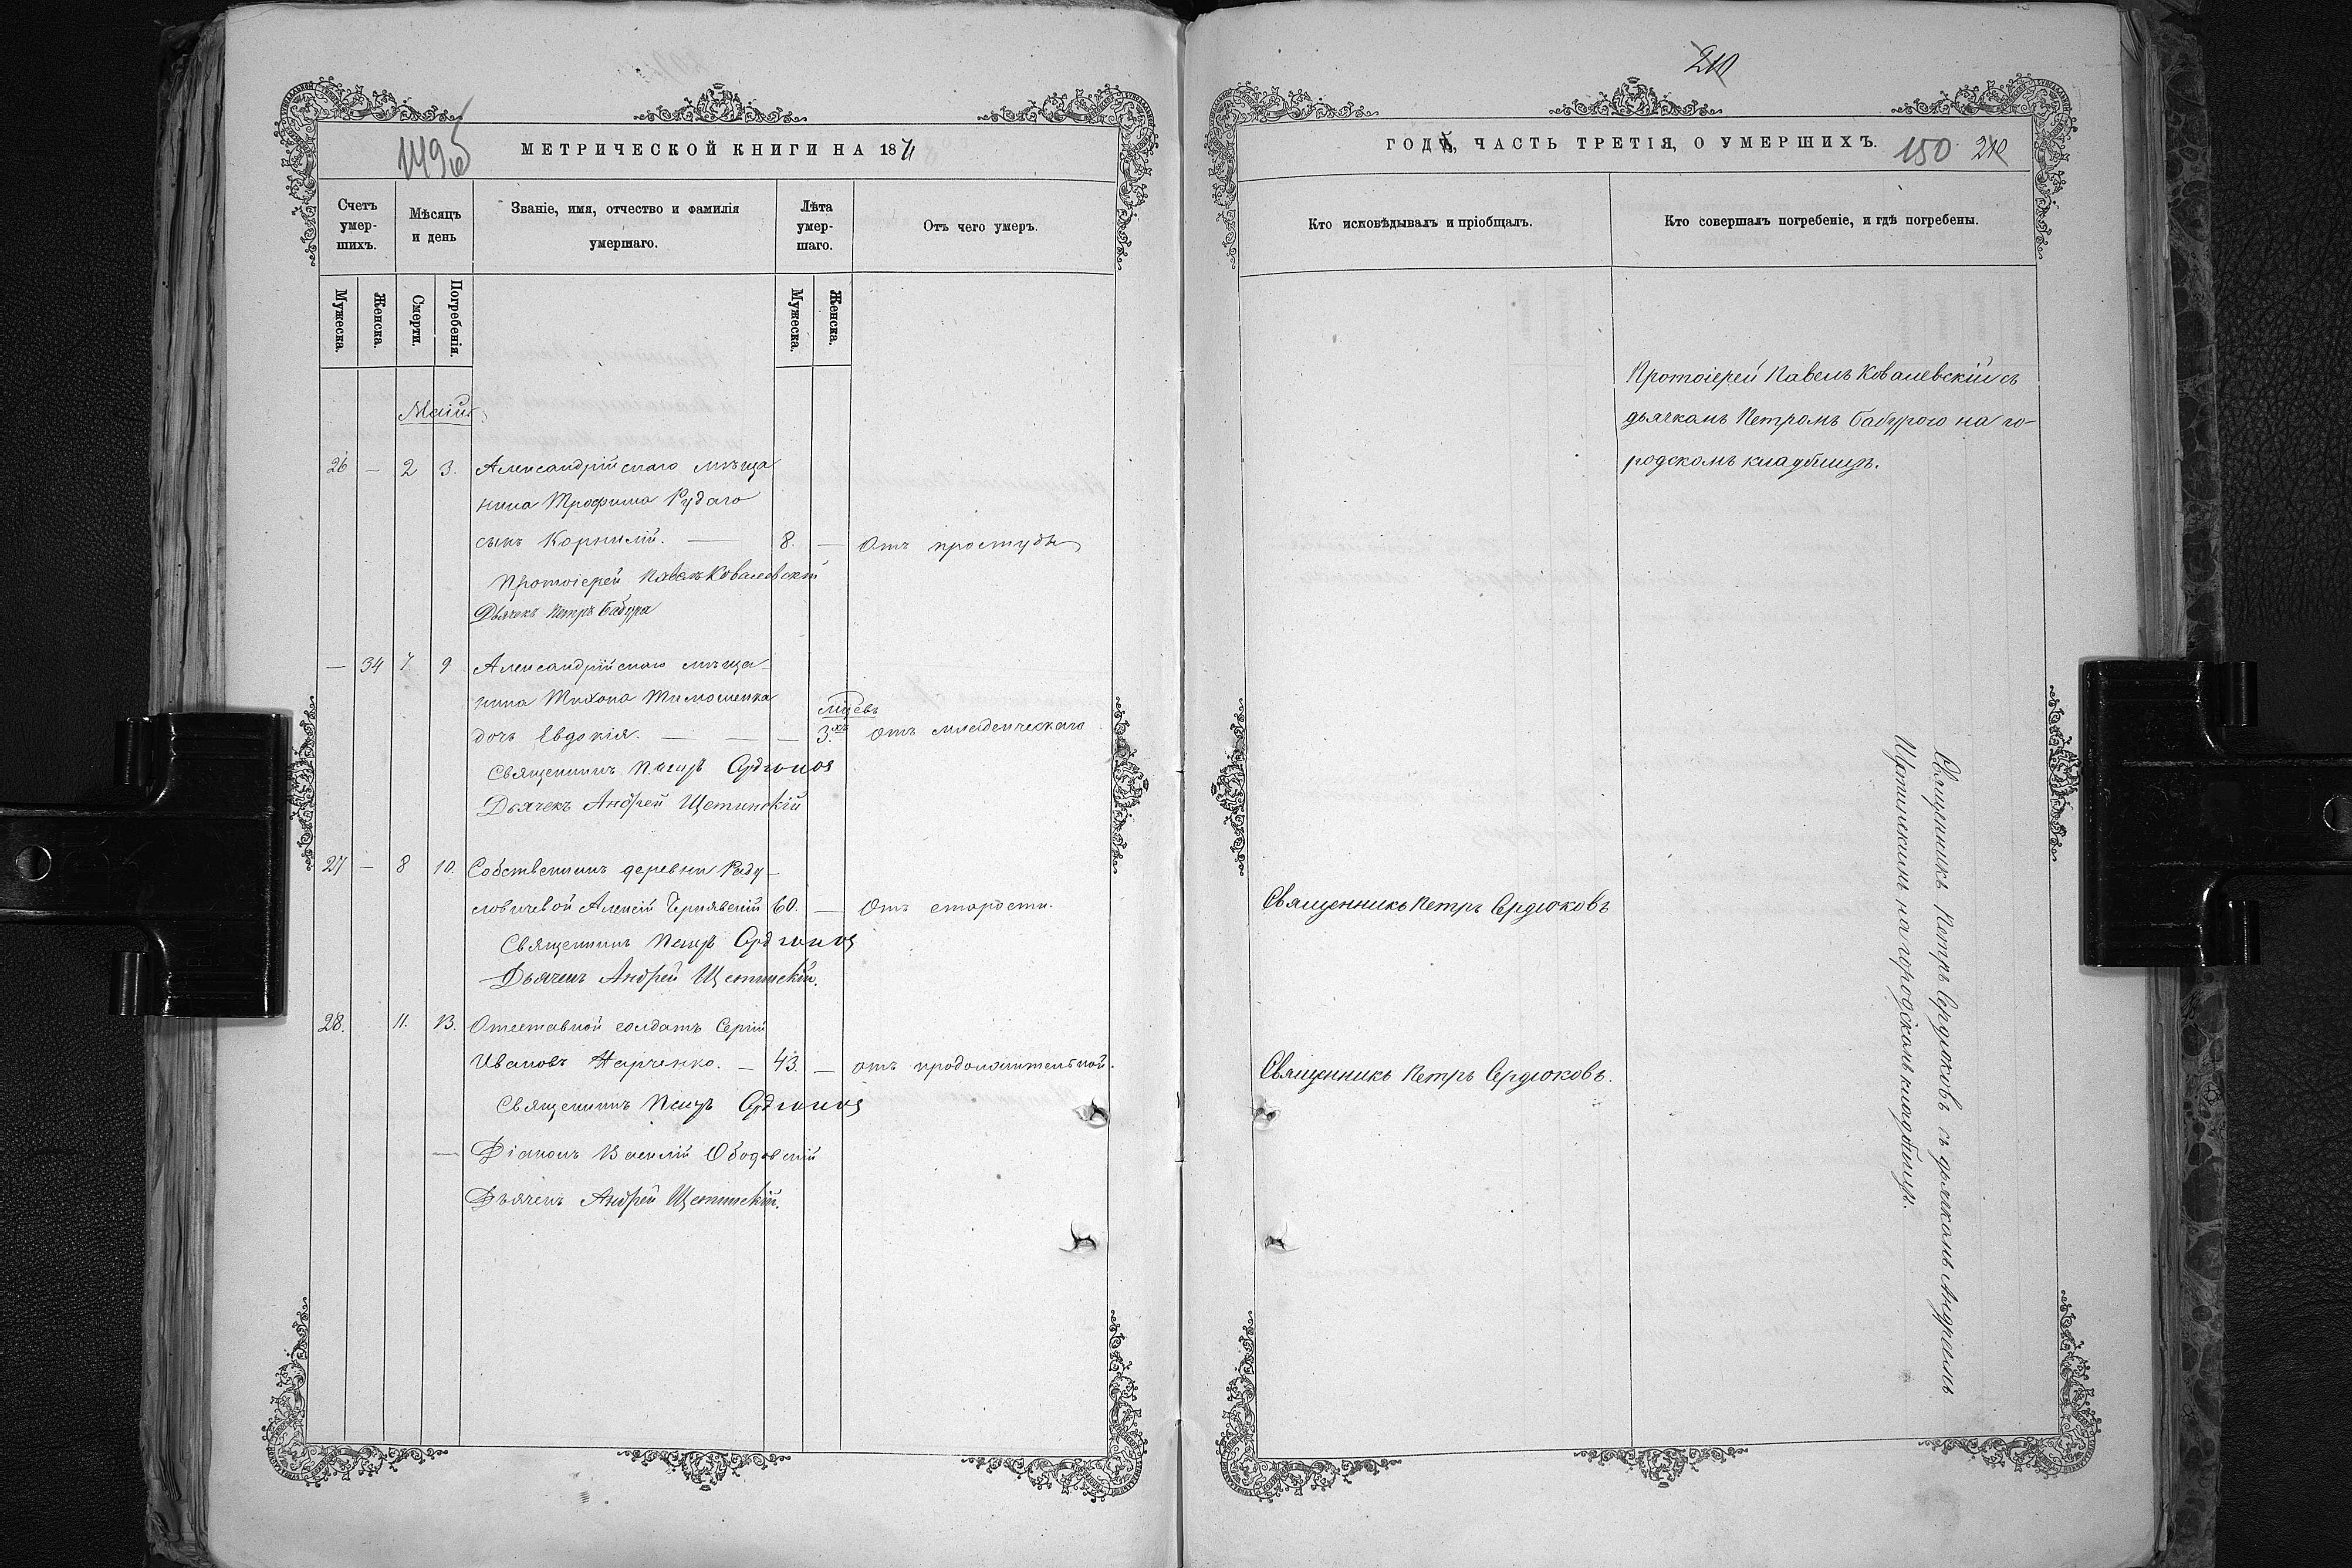 149об
МЕТРИЧЕСКОЙ КНИГИ НА 1871
Счетъ умер-шихъ.
Мѣсяцъ и день
Званіе, имя, отчество и фамилія умершаго.
Лѣта умер-шаго.
Отъ чего умеръ.
Мужеска.
Женска.
Смерти.
Погребенія.
Мужеска.
Женска.
Маій
26 — 2 3. Александрійскаго мѣща
нина Трофима Рудаго
сынъ Корнилій. — 8. — Отъ простуды
Протоіерей Павелъ Ковалевскій
Дьячекъ Петръ Бабура
— 34 7 9 Александрійскаго мѣща-
нина Тихона Тимошенка
дочь Евдокія. — — — мцевъ 3.хъ отъ младенческаго
Священникъ Петръ Сердюковъ
Дьячекъ Андрей Щетинскій
27 — 8 10. Собственникъ деревни Раду-
ловичевой Алексій Чернявскій 60. — Отъ старости.
Священникъ Петръ Сердюковъ
Дьячекъ Андрей Щетинскій.
28. 11. 13. Отставной солдатъ Сергій
Ивановъ Харченко. — 43. — отъ продолжительной.
Священникъ Петръ Сердюковъ
— Діаконъ Василій Ободовскій
Дьячекъ Андрей Щетинскій.
210
ГОДЪ, ЧАСТЬ ТРЕТІЯ, О УМЕРШИХЪ. 150 210
Кто исповѣдывалъ и пріобщалъ.
Кто совершалъ погребеніе, и гдѣ погребены.
Протоіерей Павелъ Ковалевскій съ
дьячкомъ Петромъ Бабурою на го-
родскомъ кладбищѣ.
Священникъ Петръ Сердюковъ
Священникъ Петръ Сердюковъ.
Священникъ Петръ Сердюковъ съ дьячкомъ Андреемъ
Щетинскимъ на городскомъ кладбищѣ.